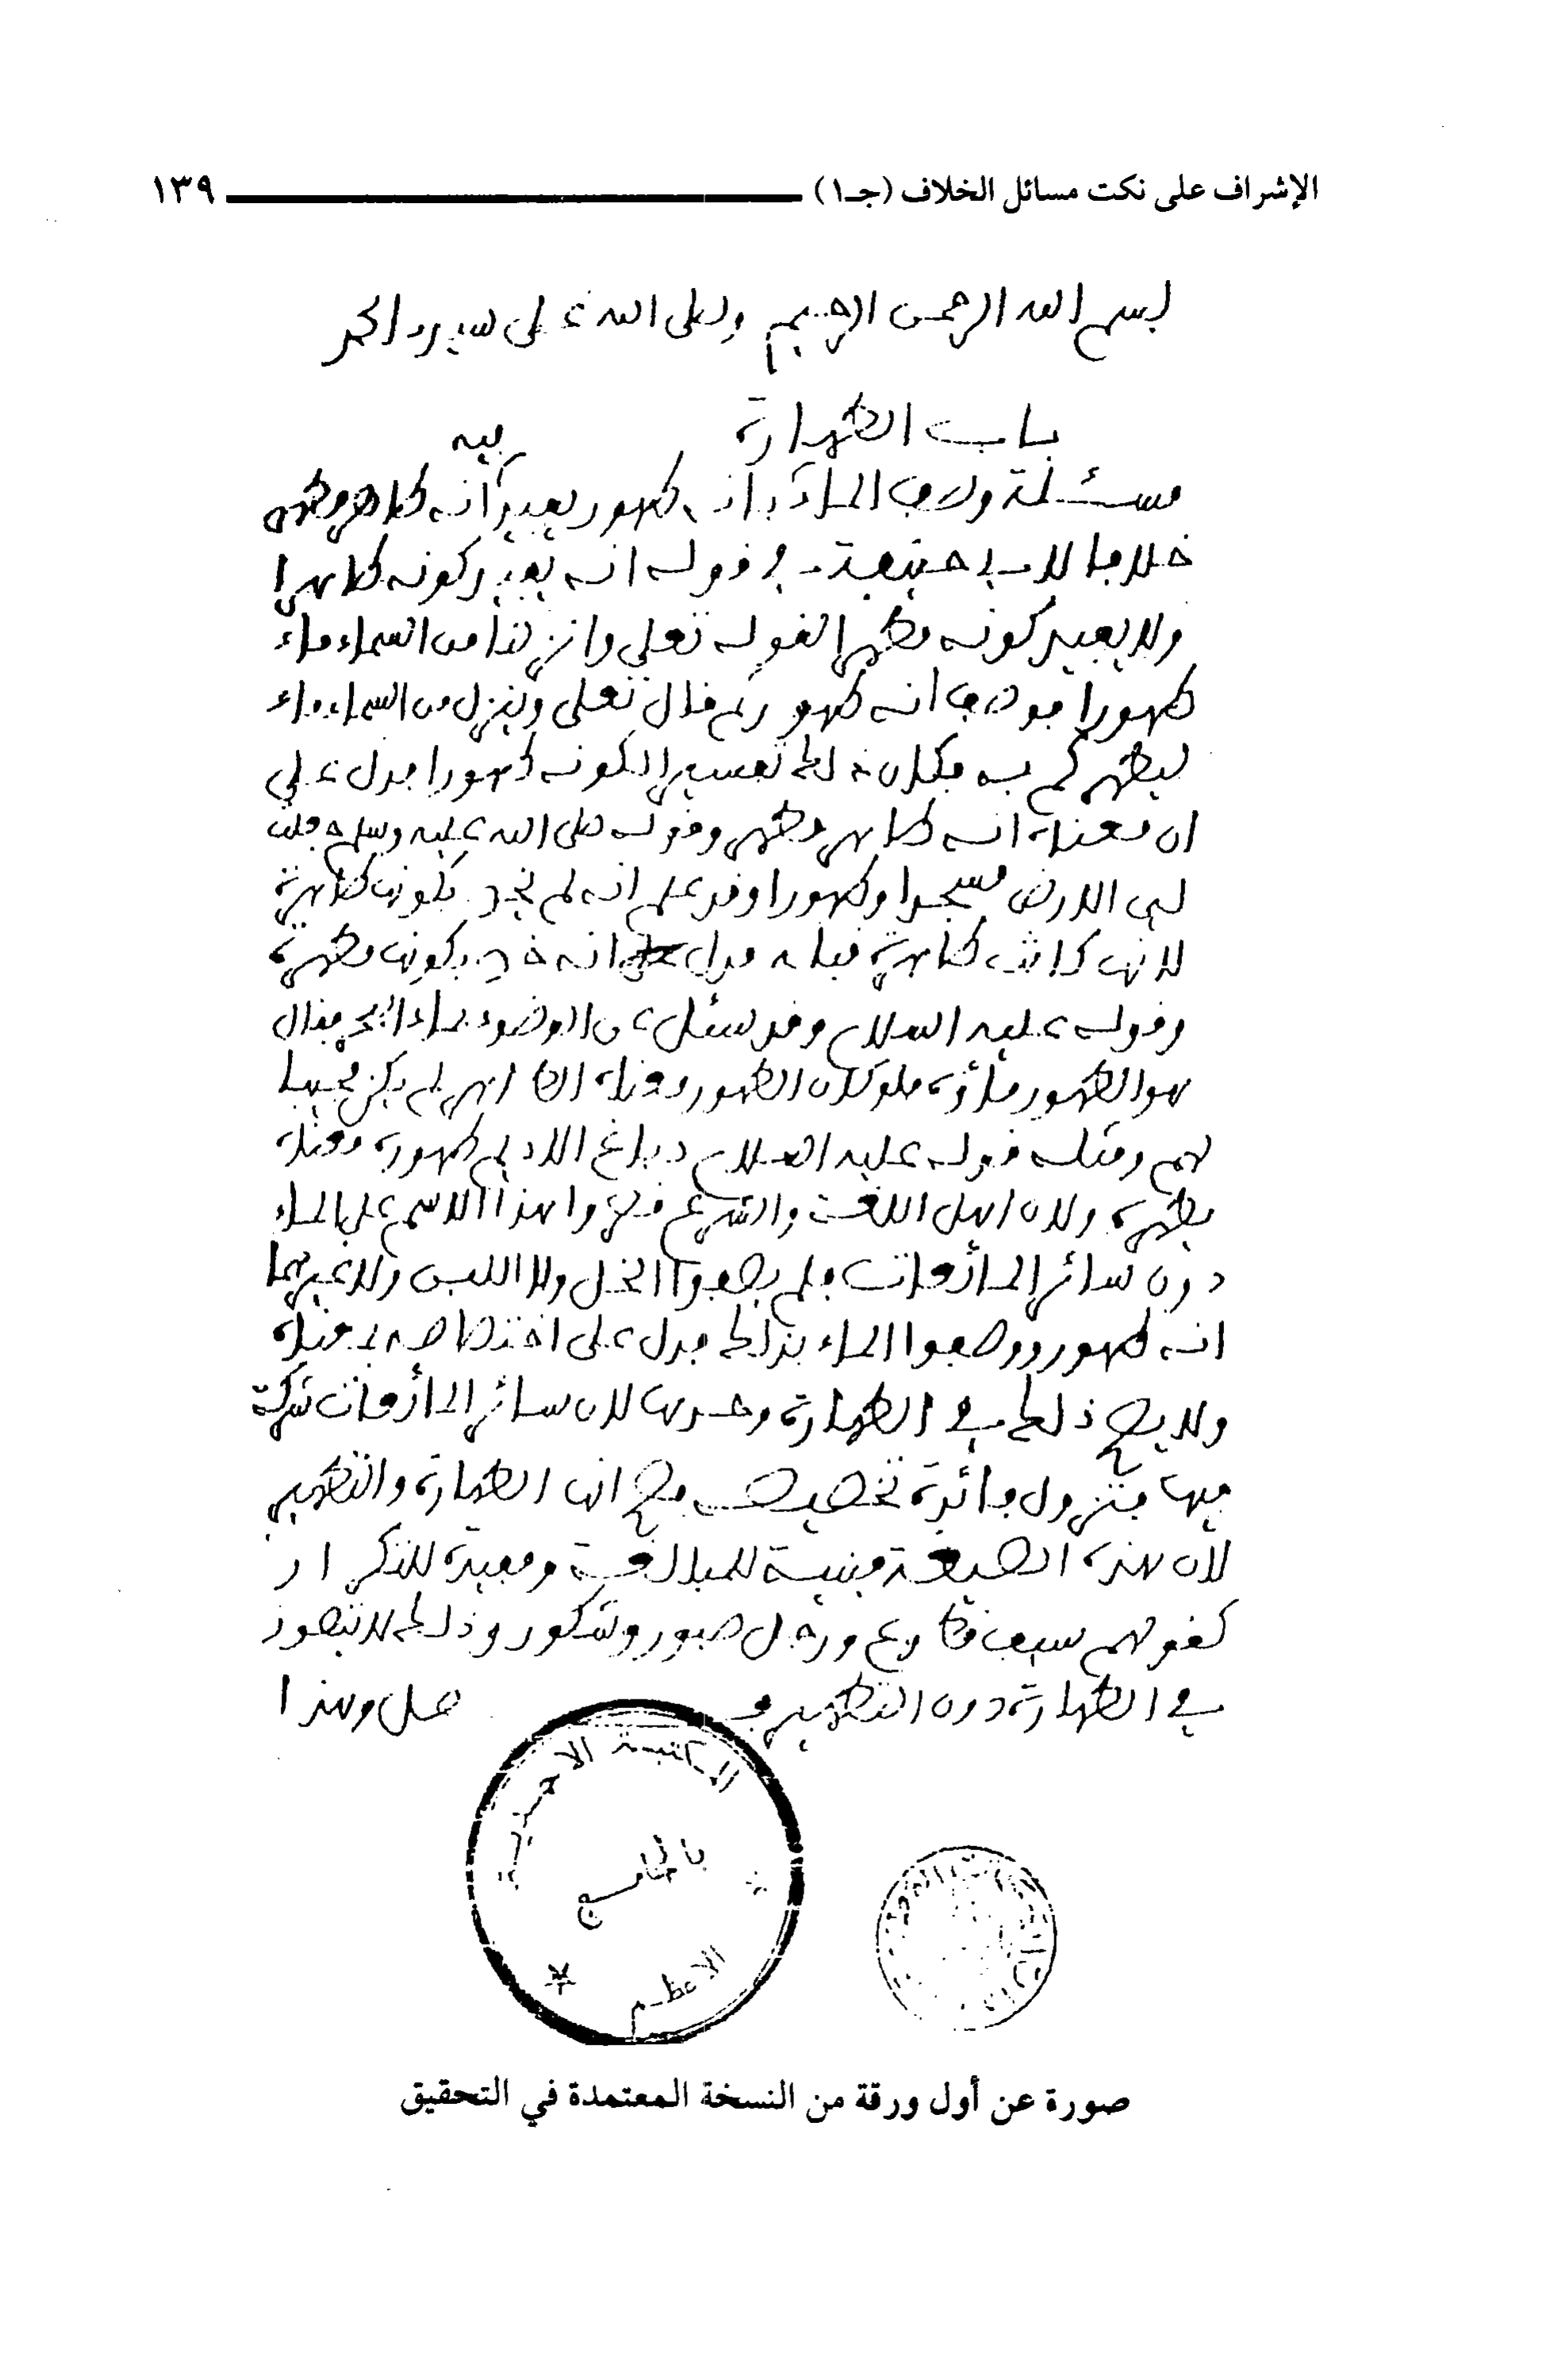 الإشراف على نكت مسائل الخلاف (جـ١) ١٣٩
بسم الله الرحمن الرحيم وصلى الله على سيدنا محمد
باب الطهارة
مسئلة وصف الماء بانه طهور يفيد انه طاهر مطهر
خلافا لابي حنيفة في قوله انه يفيد كونه طاهرا
ولا يفيد كونه مطهرا لقوله تعلى وانزلنا من السماء ماء
طهورا فوصف انه طهور ثم قال تعلى وينزل من السماء ماء
ليطهركم به فكان ذلك تفسيرا لكونه طهورا فدل على
ان معناه انه طاهر مطهر وقوله صلى الله عليه وسلم جعلت
لي الارض مسجدا وطهورا وقد علم انه لم يخبر بكونها طاهرة
لانها كانت طاهرة قبله فدل انه خبر بكونها مطهرة
وقوله عليه السلام وقد سئل عن الوضوء بماء البحر فقال
هو الطهور ماؤه فلو كان الطهور معناه الطاهر لم يكن مجيبا
لهم ومثله قوله عليه السلام دباغ الاديم طهوره معناه
مطهره ولان اهل اللغة والشرع قصروا هذا الاسم على الماء
دون سائر المائعات فلم يصفوا الخل ولا اللبن ولا غيرهما
انه طهور ووصفوا الماء بذلك فدل على اختصاصه بمعناه
ولا يصح ذلك في الطهارة وحدها لان سائر المائعات تشركه
فيها فتزول فائدة تخصيصه فصح انها الطهارة والتطهير
لان هذه الصيغة مبنية للمبالغة ومفيدة للتكرار
كقولهم سيف قطوع ورجل صبور وشكور وذلك لا يتصور
في الطهارة دون التطهير صل وهذا
المكتبة الاحمدية
بالجامع
الاعظم
صورة عن أول ورقة من النسخة المعتمدة في التحقيق